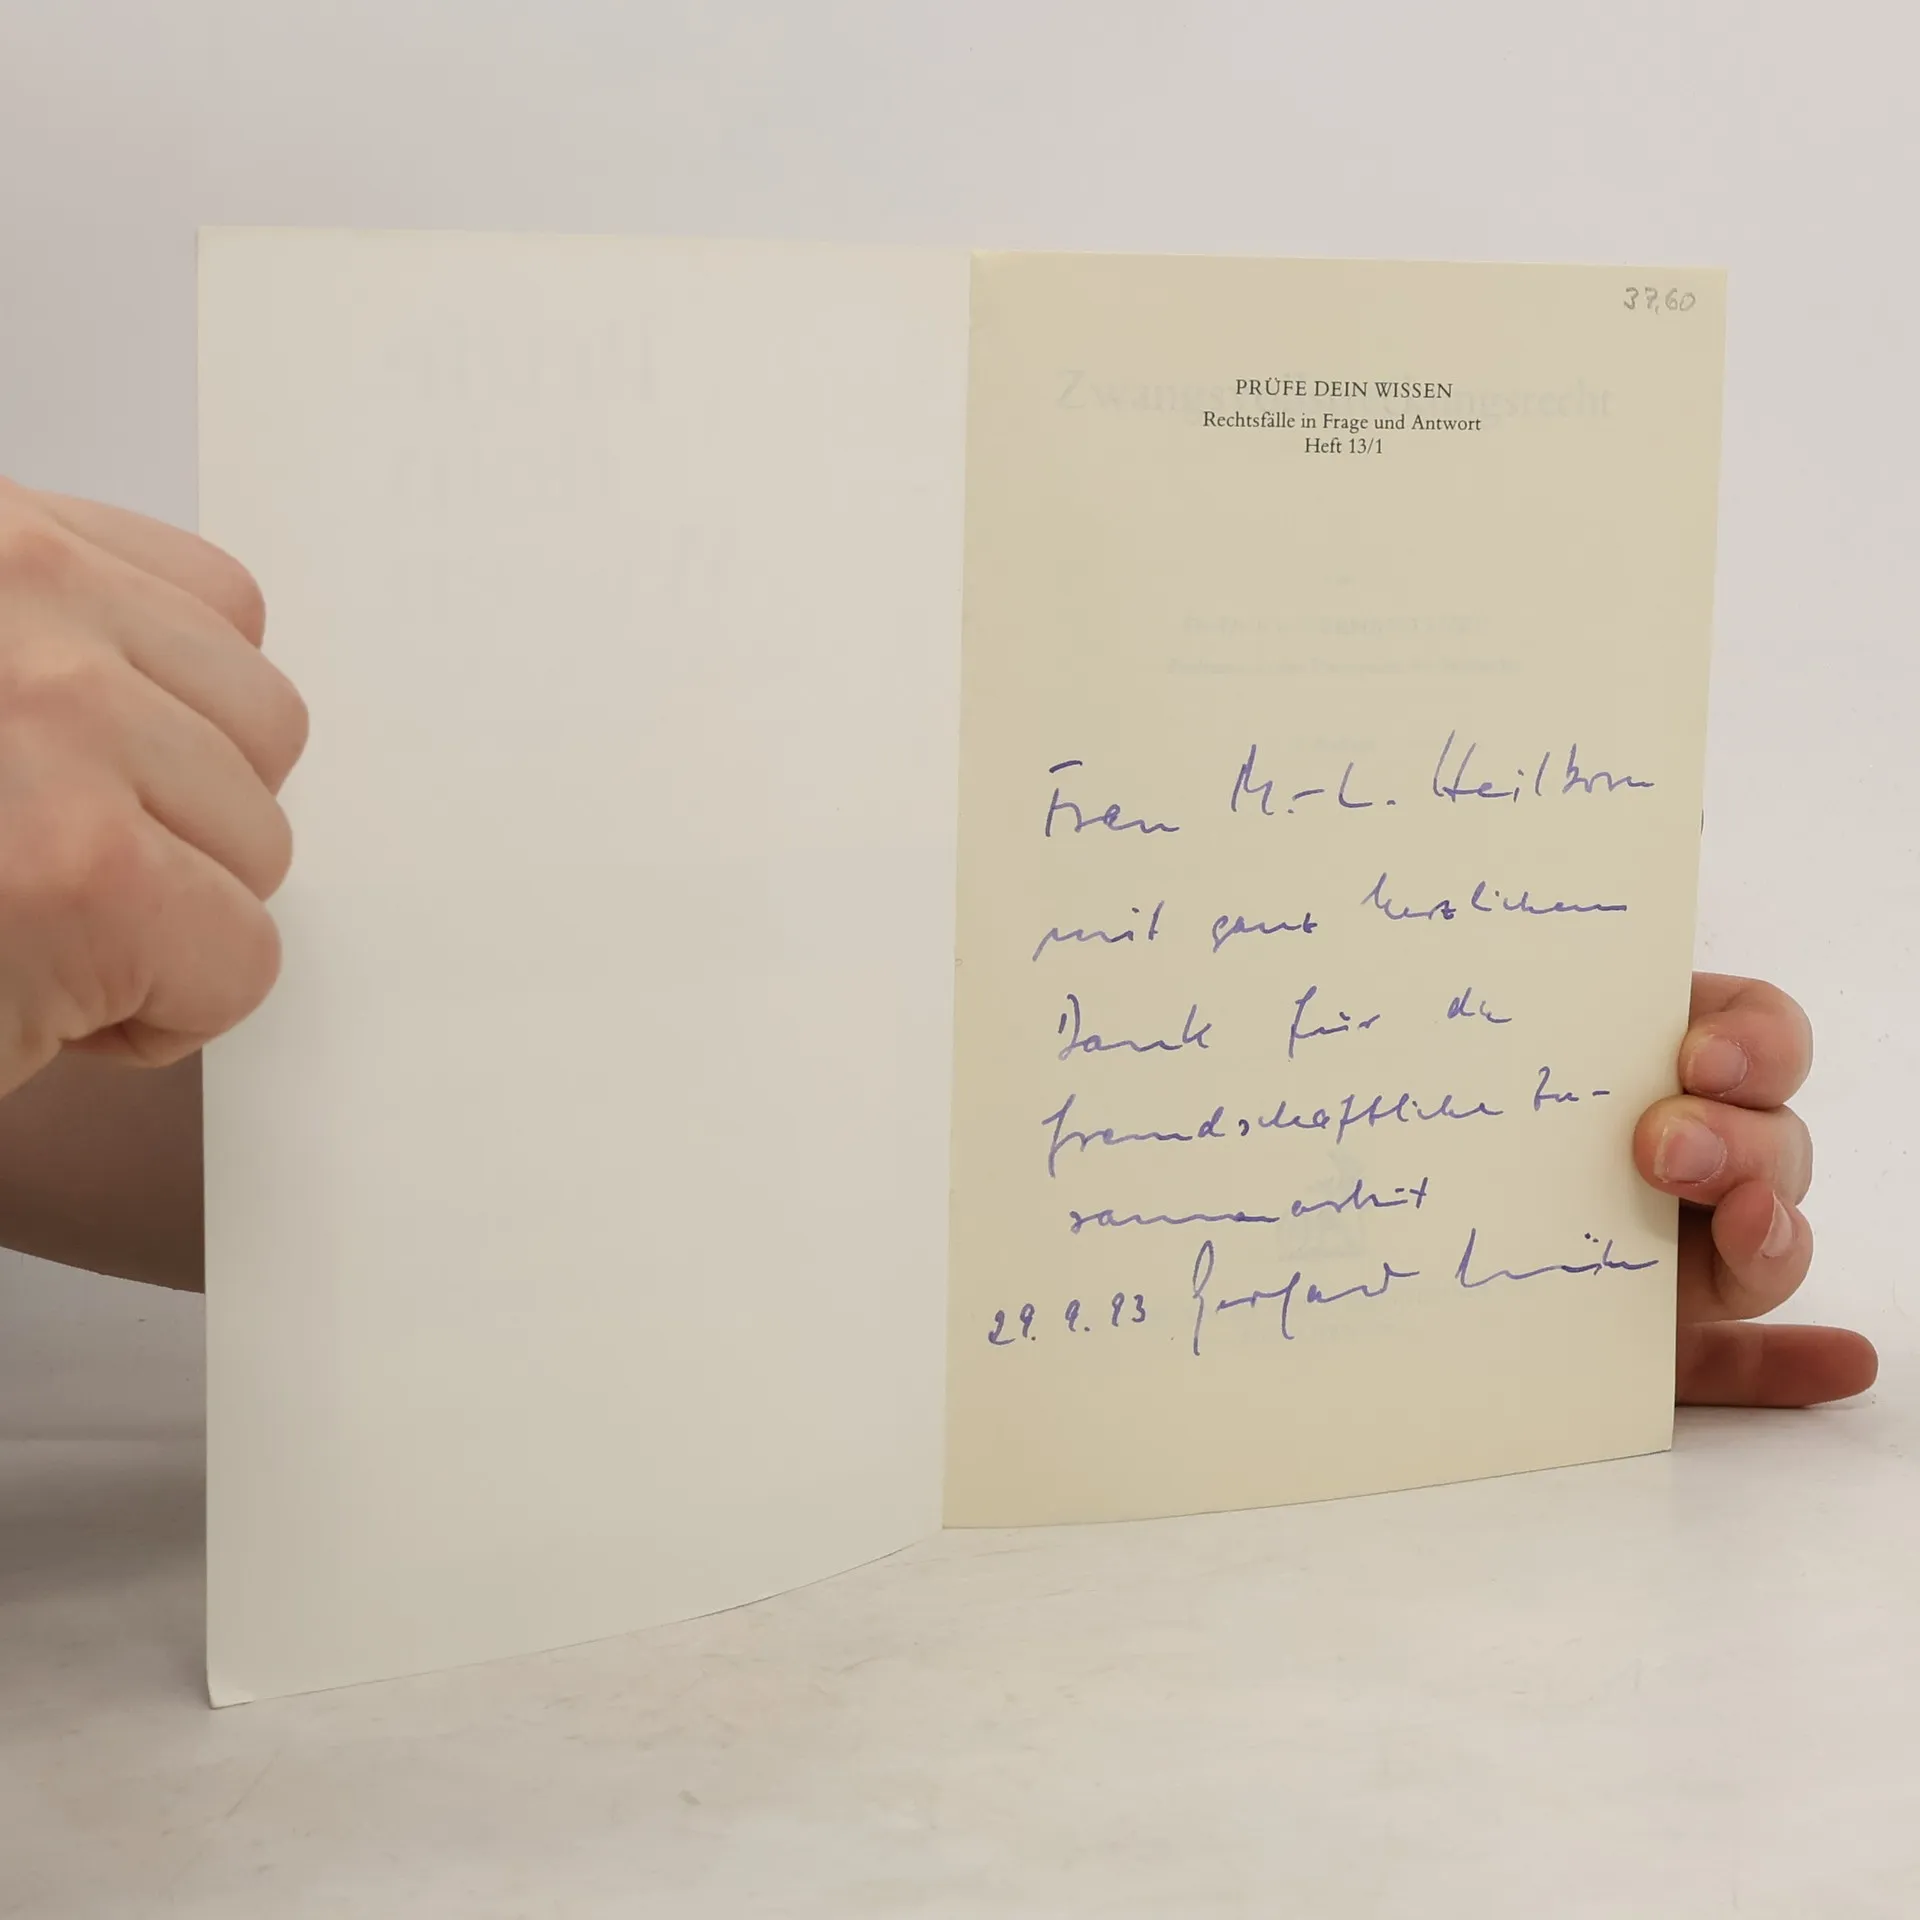 37,60
PRÜFE DEIN WISSEN
Zwangsvollstreckungsrecht
Rechtsfälle in Frage und Antwort
Heft 13/1
Frau M.-L. Heilborn
mit ganz herzlichem
Dank für die
freundschaftliche Zu-
sammenarbeit
29. 9. 93 Gerhard Lüke